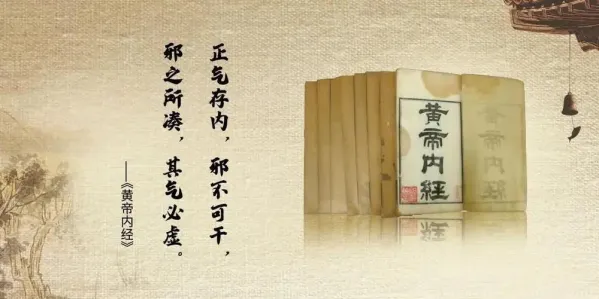 正气存内，邪不可干，
邪之所凑，其气必虚。
——《黄帝内经》
黄帝内经
黄帝内经